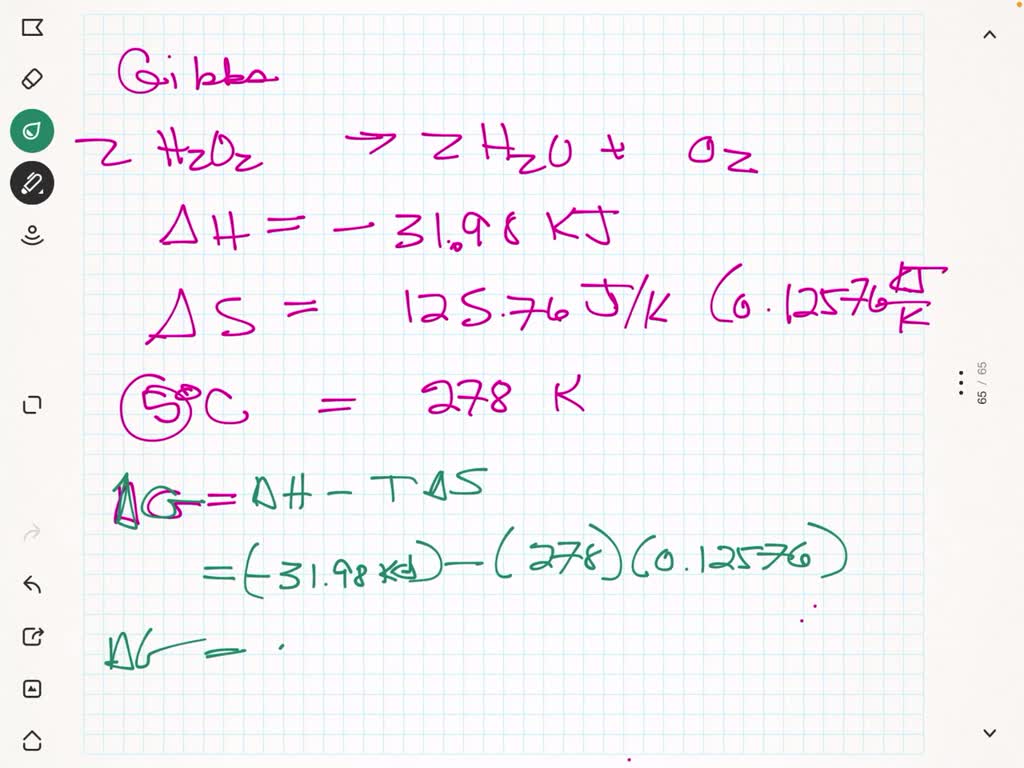 Gibbs
2 H₂O₂ → 2 H₂O + O₂
ΔH = - 31.98 KJ
ΔS = 125.76 J/K (0.12576 KJ/K
5°C = 278 K
ΔG = ΔH - TΔS
= (-31.98 KJ) - (278)(0.12576)
ΔG =
65 / 65